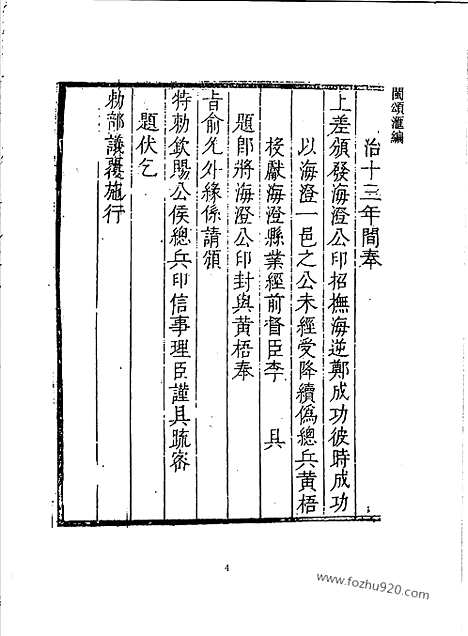 閩頌滙編
治十三年間奉
上差頒發海澄公印招撫海逆鄭成功彼時成功
以海澄一邑之公未經受降續偽總兵黃梧
投獻海澄縣業經前督臣李　具
題即將海澄公印封與黃梧奉
旨俞允外緣係請頒
特勅欽賜公侯總兵印信事理臣謹具疏密
題伏乞
勅部議覆施行
4
www.fozhu920.com